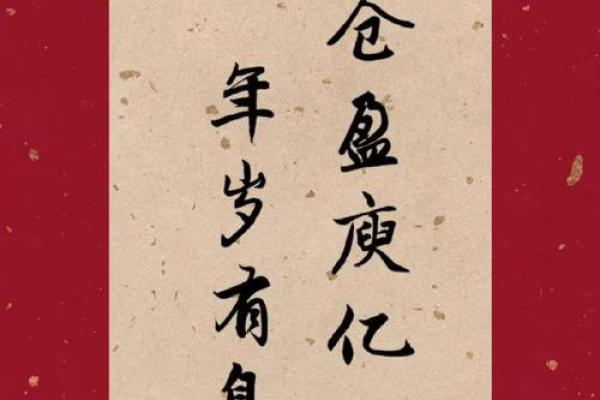 仓盈庾亿
年岁有